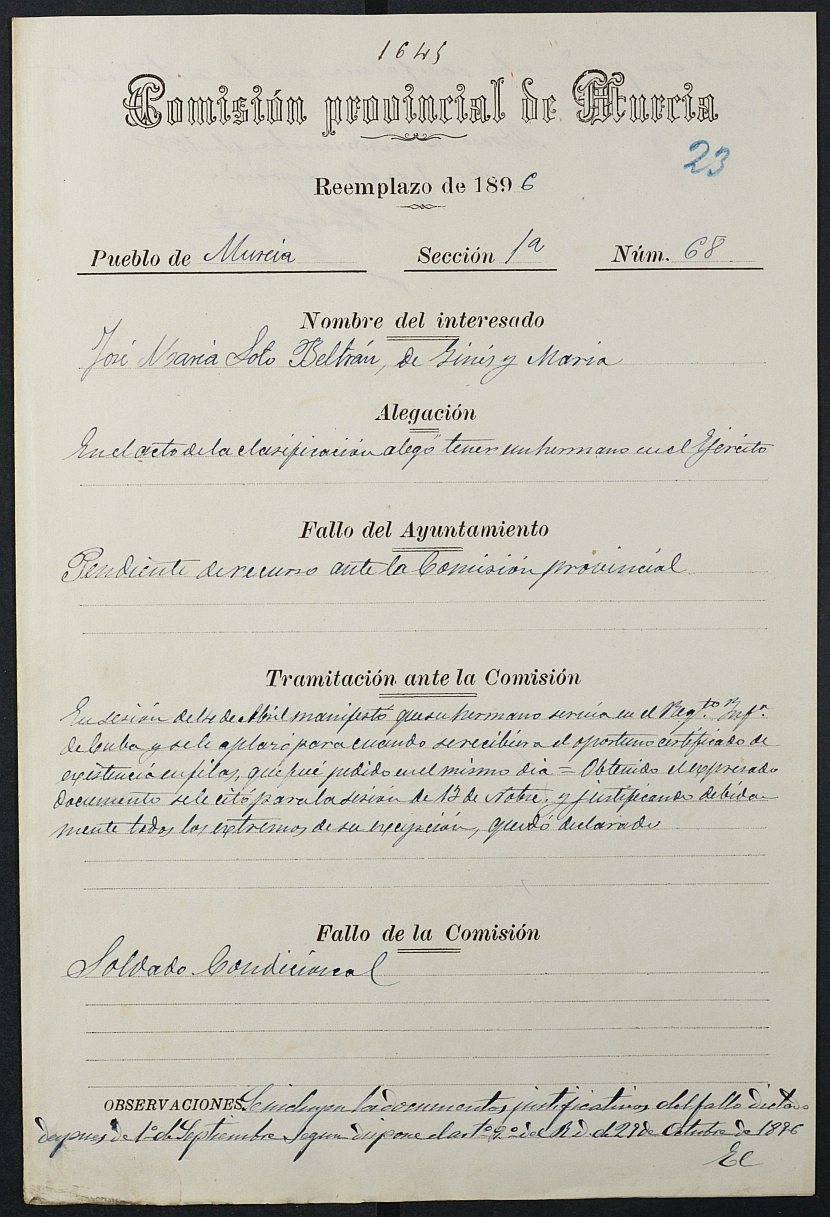 1645
Comisión provincial de Murcia
23
Reemplazo de 1896
Pueblo de Murcia Sección 1ª Núm. 68
Nombre del interesado
José Maria Soto Beltrán, de Ginés y Maria
Alegación
En el acto de la clasificación alegó tener un hermano en el Ejército
Fallo del Ayuntamiento
Pendiente de recurso ante la Comisión provincial
Tramitación ante la Comisión
En sesión del de Abril manifestó que su hermano servia en el Regto. Infª.
de Cuba y se le aplazó para cuando se recibiera el oportuno certificado de
existencia en filas, que fué pedido en el mismo dia = Obtenido el expresado
documento se le citó para la sesión de 13 de Nobre. y justificando debida-
mente todos los extremos de su excepción, quedó declarado
Fallo de la Comisión
Soldado Condicional
OBSERVACIONES. los documentos justificativos del fallo dictado
despues de 1º de Septiembre segun dispone el artº 2º del R.D. de de Octubre de 1896